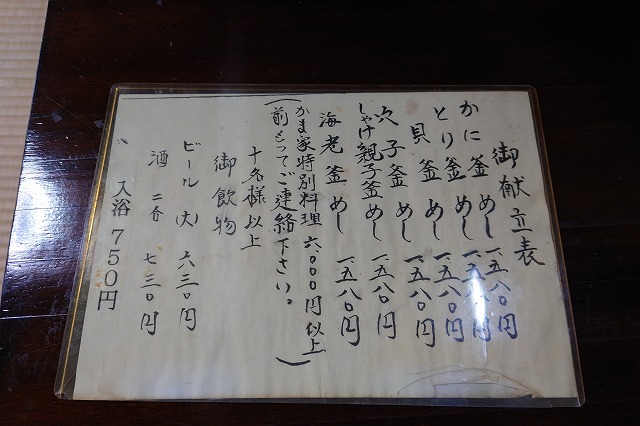 御献立表
かに釜めし 一、五八〇円
とり釜めし 一、五八〇円
貝釜めし 一、五八〇円
次子釜めし 一、五八〇円
しゃけ親子釜めし 一、五八〇円
海老釜めし 一、五八〇円
かま家特別料理 六、〇〇〇円以上
(前もってご連絡下さい。)
十名様以上
御飲物
ビール(大) 六三〇円
酒 二合 七三〇円
入浴 750円